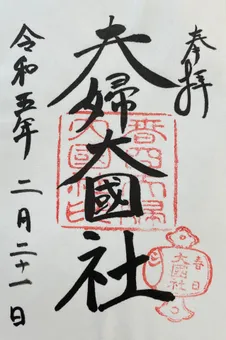 奉拝
夫婦大國社
春日
大國社
令和五年 二月二十一日